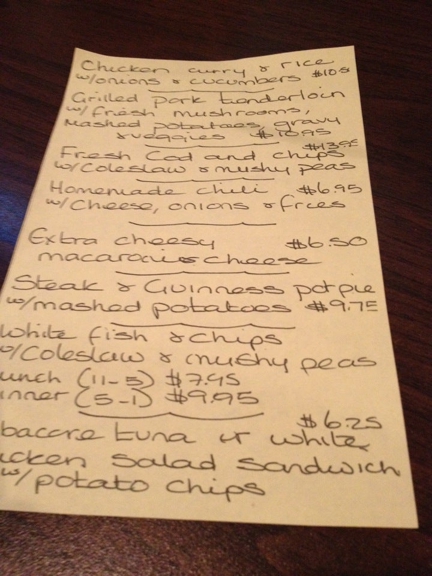 Chicken curry & rice
w/onions & cucumbers $10.5
Grilled Pork tenderloin
w/fresh mushrooms,
Mashed potatoes, gravy
& veggies $10.95
$13.95
Fresh Cod and chips
w/Coleslaw & mushy peas
Homemade chili $6.95
w/Cheese, onions & fries
Extra cheesy $6.50
macaroni & cheese
Steak & Guinness pot pie
w/mashed potatoes $9.75
White fish & chips
w/Coleslaw & mushy peas
unch (11-5) $7.95
inner (5-1) $9.95
$6.25
bacore tuna or white
icken Salad Sandwich
w/potato chips